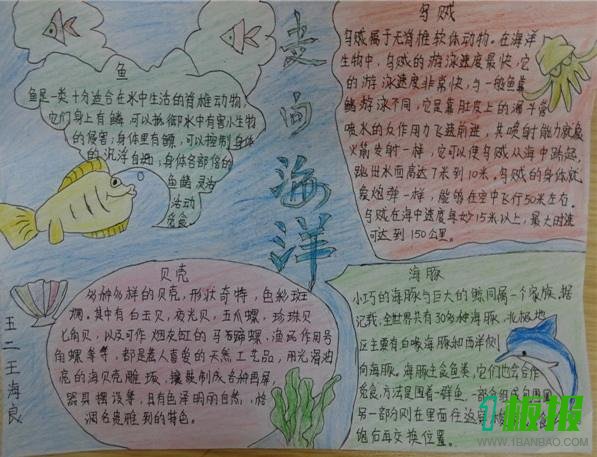 走向海洋
鱼
鱼是一类十分适合在水中生活的脊椎动物,
它们身上有鳞可以抵御水中有害小生物
的侵害;身体里有鳔,可以控制身体
的沉浮自如;身体各部位的
鱼鳍灵活
活动
乌贼
乌贼属于无脊椎软体动物。在海洋
生物中,乌贼的游泳速度最快,它
的游泳速度非常快,与一般鱼靠
鳍游泳不同,它是靠肚皮上的漏斗管
喷水的反作用力飞速前进,其喷射能力就像
火箭发射一样,它可以使乌贼从海中跃起,
跳出水面高达7米到10米,乌贼的身体就
像炮弹一样,能够在空中飞行50米左右。
乌贼在海中速度每妙15米以上,最大时速
可达到150公里。
贝壳
多种多样的贝壳,形状奇特,色彩斑
斓。其中有白玉贝、夜光贝、五爪螺、珍珠贝
七角贝,以及可作烟灰缸的马蹄蹄螺,渔民作用号
角螺等等,都是人喜爱的天然工艺品,用光滑油
亮的海贝壳雕琢,镶嵌制成各种再屏,
器具摆设等,具有色泽明丽自然,格
润名贵雅到的特色。
海豚
小巧的海豚与巨大的鲸同属一个家族,据
记载,全世界共有30多种海豚,北极地
区主要有白吸海豚和西洋侧
向海豚。海豚主食鱼类,它们也会合作
觅食,方法是围着一群鱼,一部分
另一部分则在里面往
饱后再交换位置。
五二王海良
1板报
www.1BANBAO.COM